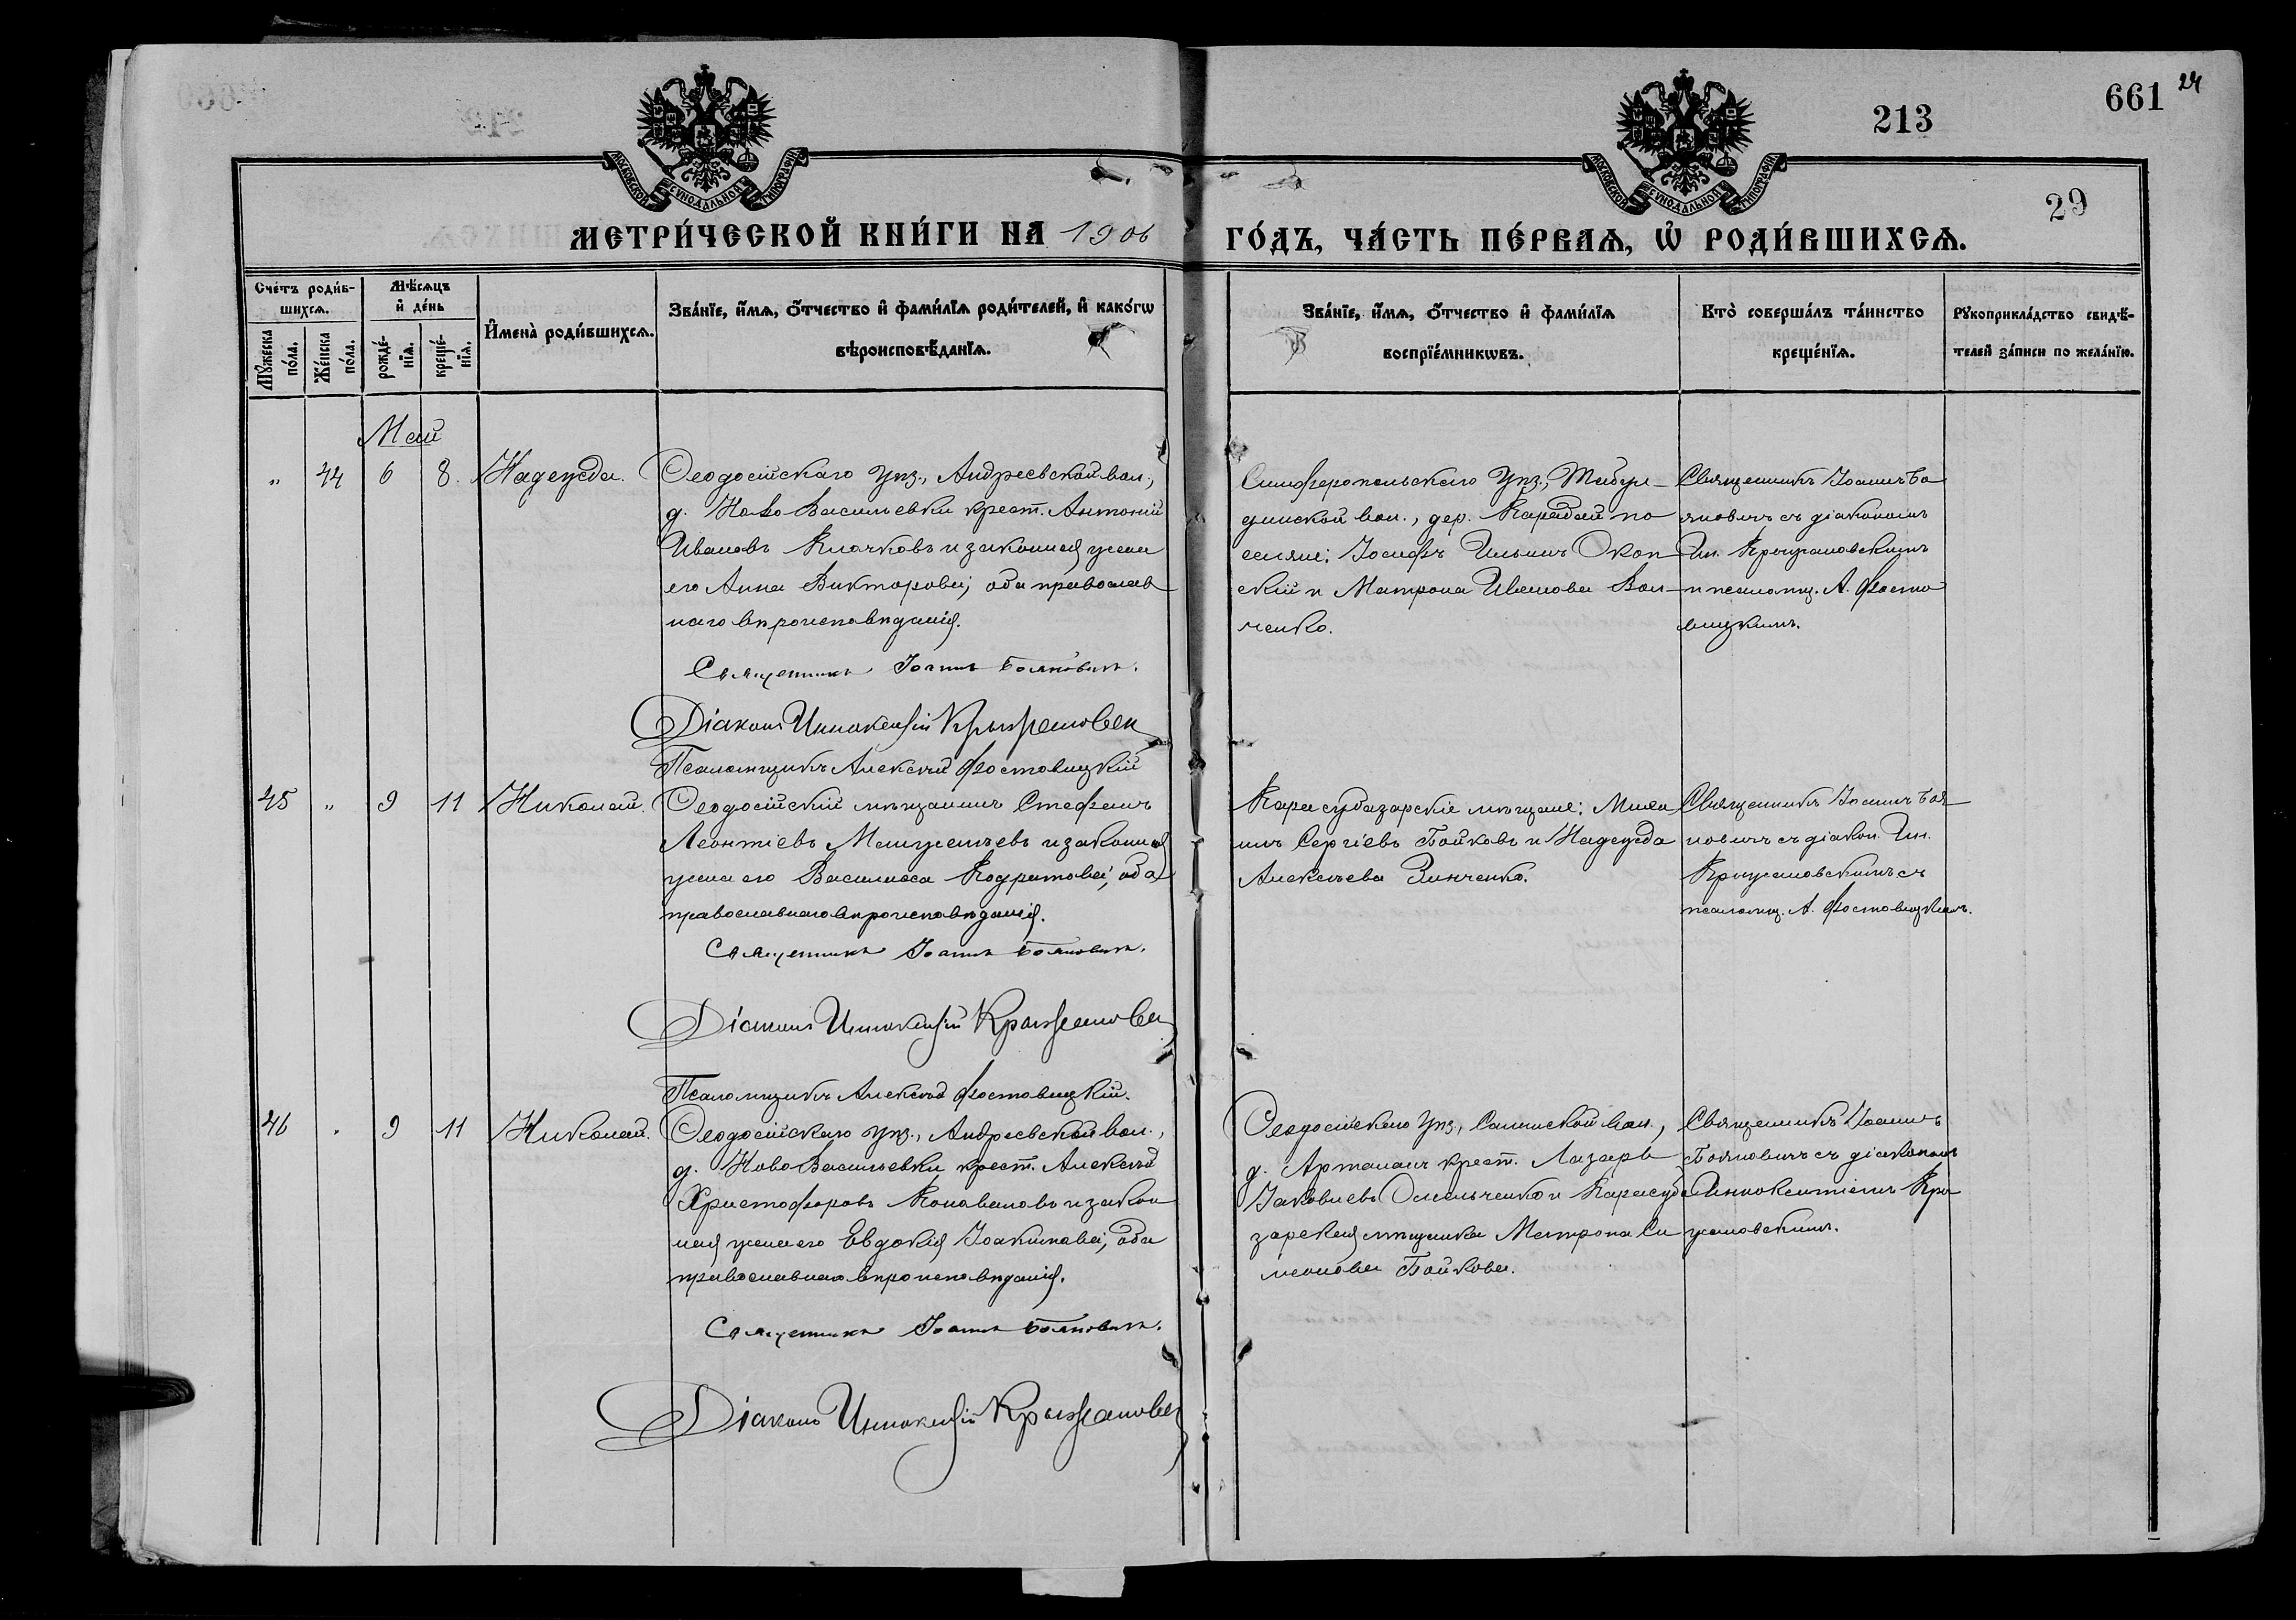 213
661
24
29
МОСКОВСКОЙ СУНОДАЛЬНОЙ ТИПОГРАФІИ
МОСКОВСКОЙ СУНОДАЛЬНОЙ ТИПОГРАФІИ
МЕТРИ́ЧЕСКОЙ КНИ́ГИ НА 1906 ГО́ДЪ, ЧА́СТЬ ПЕ́РВАѦ, Ѡ҆ РОДИ́ВШИХСѦ.
Сче́тъ роди́в-
шихсѧ.
Мꙋ́жеска по́ла.
Же́нска по́ла.
Мѣ́сѧцъ и҆ де́нь
рожде́-нїѧ.
креще́-нїѧ.
И҆мена̀ роди́вшихсѧ.
Зва́нїе, и҆́мѧ, о҆́тчество и҆ фами́лїѧ роди́телей, и҆ како́гѡ
вѣроисповѣ́данїѧ.
Зва́нїе, и҆́мѧ, о҆́тчество и҆ фами́лїѧ
воспрїе́мникѡвъ.
Кто̀ соверша́лъ та́инство
креще́нїѧ.
Рꙋкоприкла́дство свидѣ́-
телей за́писи по жела́нїю.
Май
" 44 6 8. Надежда.
Ѳеодосійскаго уѣз., Андреевской вол.,
д. Ново Васильевки крест. Антоній
Ивановъ Клочковъ и законная жена
его Анна Викторова; оба православ
наго вѣроисповѣданія.
Священникъ Іоаннъ Бояновичъ.
Діаконъ Иннокентій Крыжановск
Псаломщикъ Алексѣй Фостовицкій
Симферопольскаго уѣз., Табул-
динской вол., дер. Карабай по
селяне: Іосифъ Ильинъ Окоп
скій и Матрона Иванова Вол-
ченко.
Священникъ Іоаннъ Бо
яновичъ съ діакономъ
Ин. Крыжановскимъ
и псаломщ. А. Фосто
вицкимъ.
45 " 9 11 Николай.
Ѳеодосійскій мѣщанинъ Стефанъ
Леонтіевъ и законная
жена его Василиса Кодратова; оба
православнаго вѣроисповѣданія.
Священникъ Іоаннъ Бояновичъ.
Діаконъ Иннокентій Крыжановск
Псаломщикъ Алексѣй Фостовицкій.
Карасубазарскіе мѣщане: Миха
илъ Сергіевъ Бойковъ и Надежда
Алексѣева Зинченко.
Священникъ Іоаннъ Боя
новичъ съ діакон. Ин.
Крыжановскимъ съ
псаломщ. А. Фостовицкимъ.
46 " 9 11 Николай.
Ѳеодосійскаго уѣз., Андреевской вол.,
д. Ново Васильевки крест. Алексѣй
Христофоровъ Коноваловъ и закон
ная жена его Евдокія Іоакимова; оба
православнаго вѣроисповѣданія.
Священникъ Іоаннъ Бояновичъ.
Діаконъ Иннокентій Крыжановск
Ѳеодосійскаго уѣз., Салынской вол.,
д. Арталанъ крест. Лазарь
Іаковлевъ Омельченко и Карасуба
зарская мѣщанка Матрона Си
меонова Бойкова.
Священникъ Іоаннъ
Бояновичъ съ діакономъ
Иннокентіемъ Кры
жановскимъ.